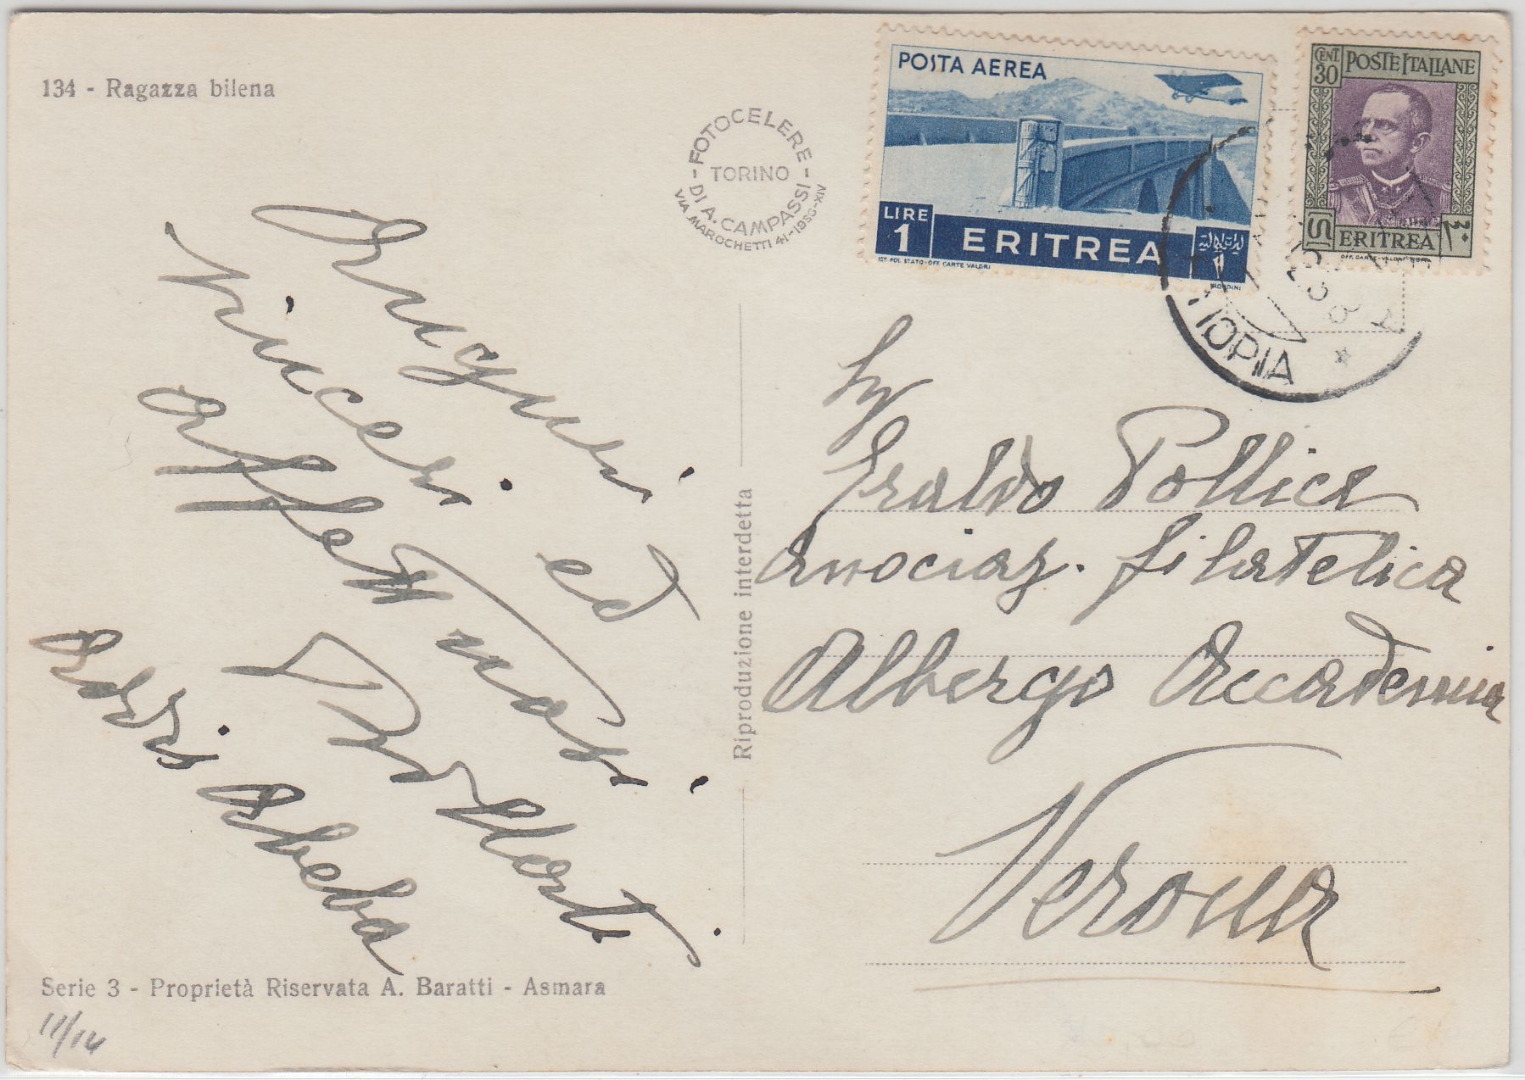 134 - Ragazza bilena
FOTOCELERE
TORINO
DI A. CAMPASSI
VIA MAROCHETTI 41-1936-XIV
POSTA AEREA
LIRE
1
ERITREA
IST. POL. STATO-OFF. CARTE VALORI
MONDINI
CENT.
30
POSTE ITALIANE
ERITREA
TIOPIA
Auguri
sinceri ed
affettuosi
Addis Abeba
Eraldo Pollice
Associaz. filatelica
Albergo Accademia
Verona
Riproduzione interdetta
Serie 3 - Proprietà Riservata A. Baratti - Asmara
11/14